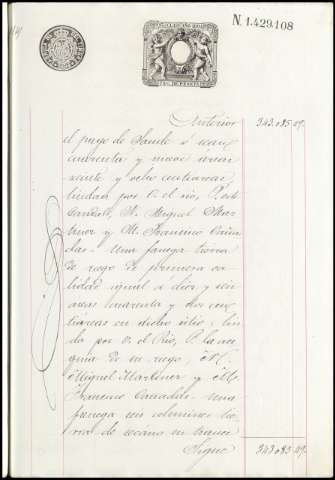 N. 1.429.108
Anterior 343.085.09
el pago de Saude ó sean
cuarenta y nueve areas
veinte y ocho centiareas
lindan por O. el rio, P.
N. Miguel Mar
tinez y M. Francisco Caña
das. Una fanega tierra
de riego de primera ca
lidad igual a diez y seis
areas cuarenta y dos cen
tiareas en dicho sitio; lin
da por O. el Rio, P. la ace
quia de su riego, N.
Miguel Martinez y M.
Francisco Cañadas. Una
fanega seis celemines tie
rra de secano en trance
Sigue 343.085.09